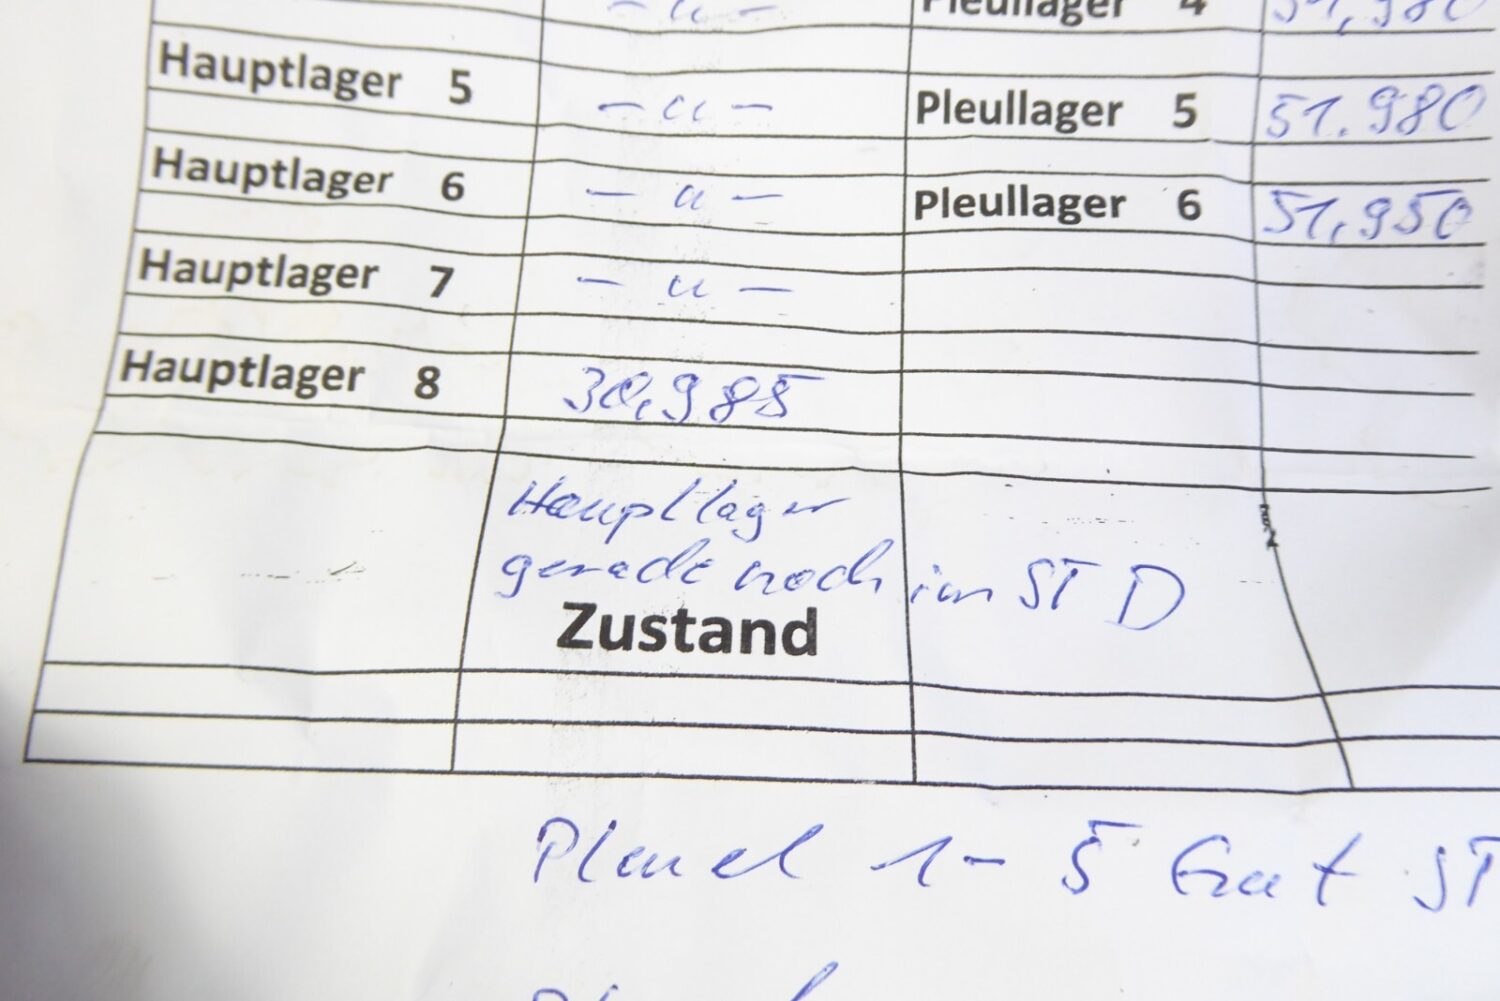 – " – Pleullager 4 51,980
Hauptlager 5 – " – Pleullager 5 51.980
Hauptlager 6 – " – Pleullager 6 51,950
Hauptlager 7 – " –
Hauptlager 8 30,985
Hauptlager
gerade noch im STD
Zustand
Pleuel 1-5 Gut ST